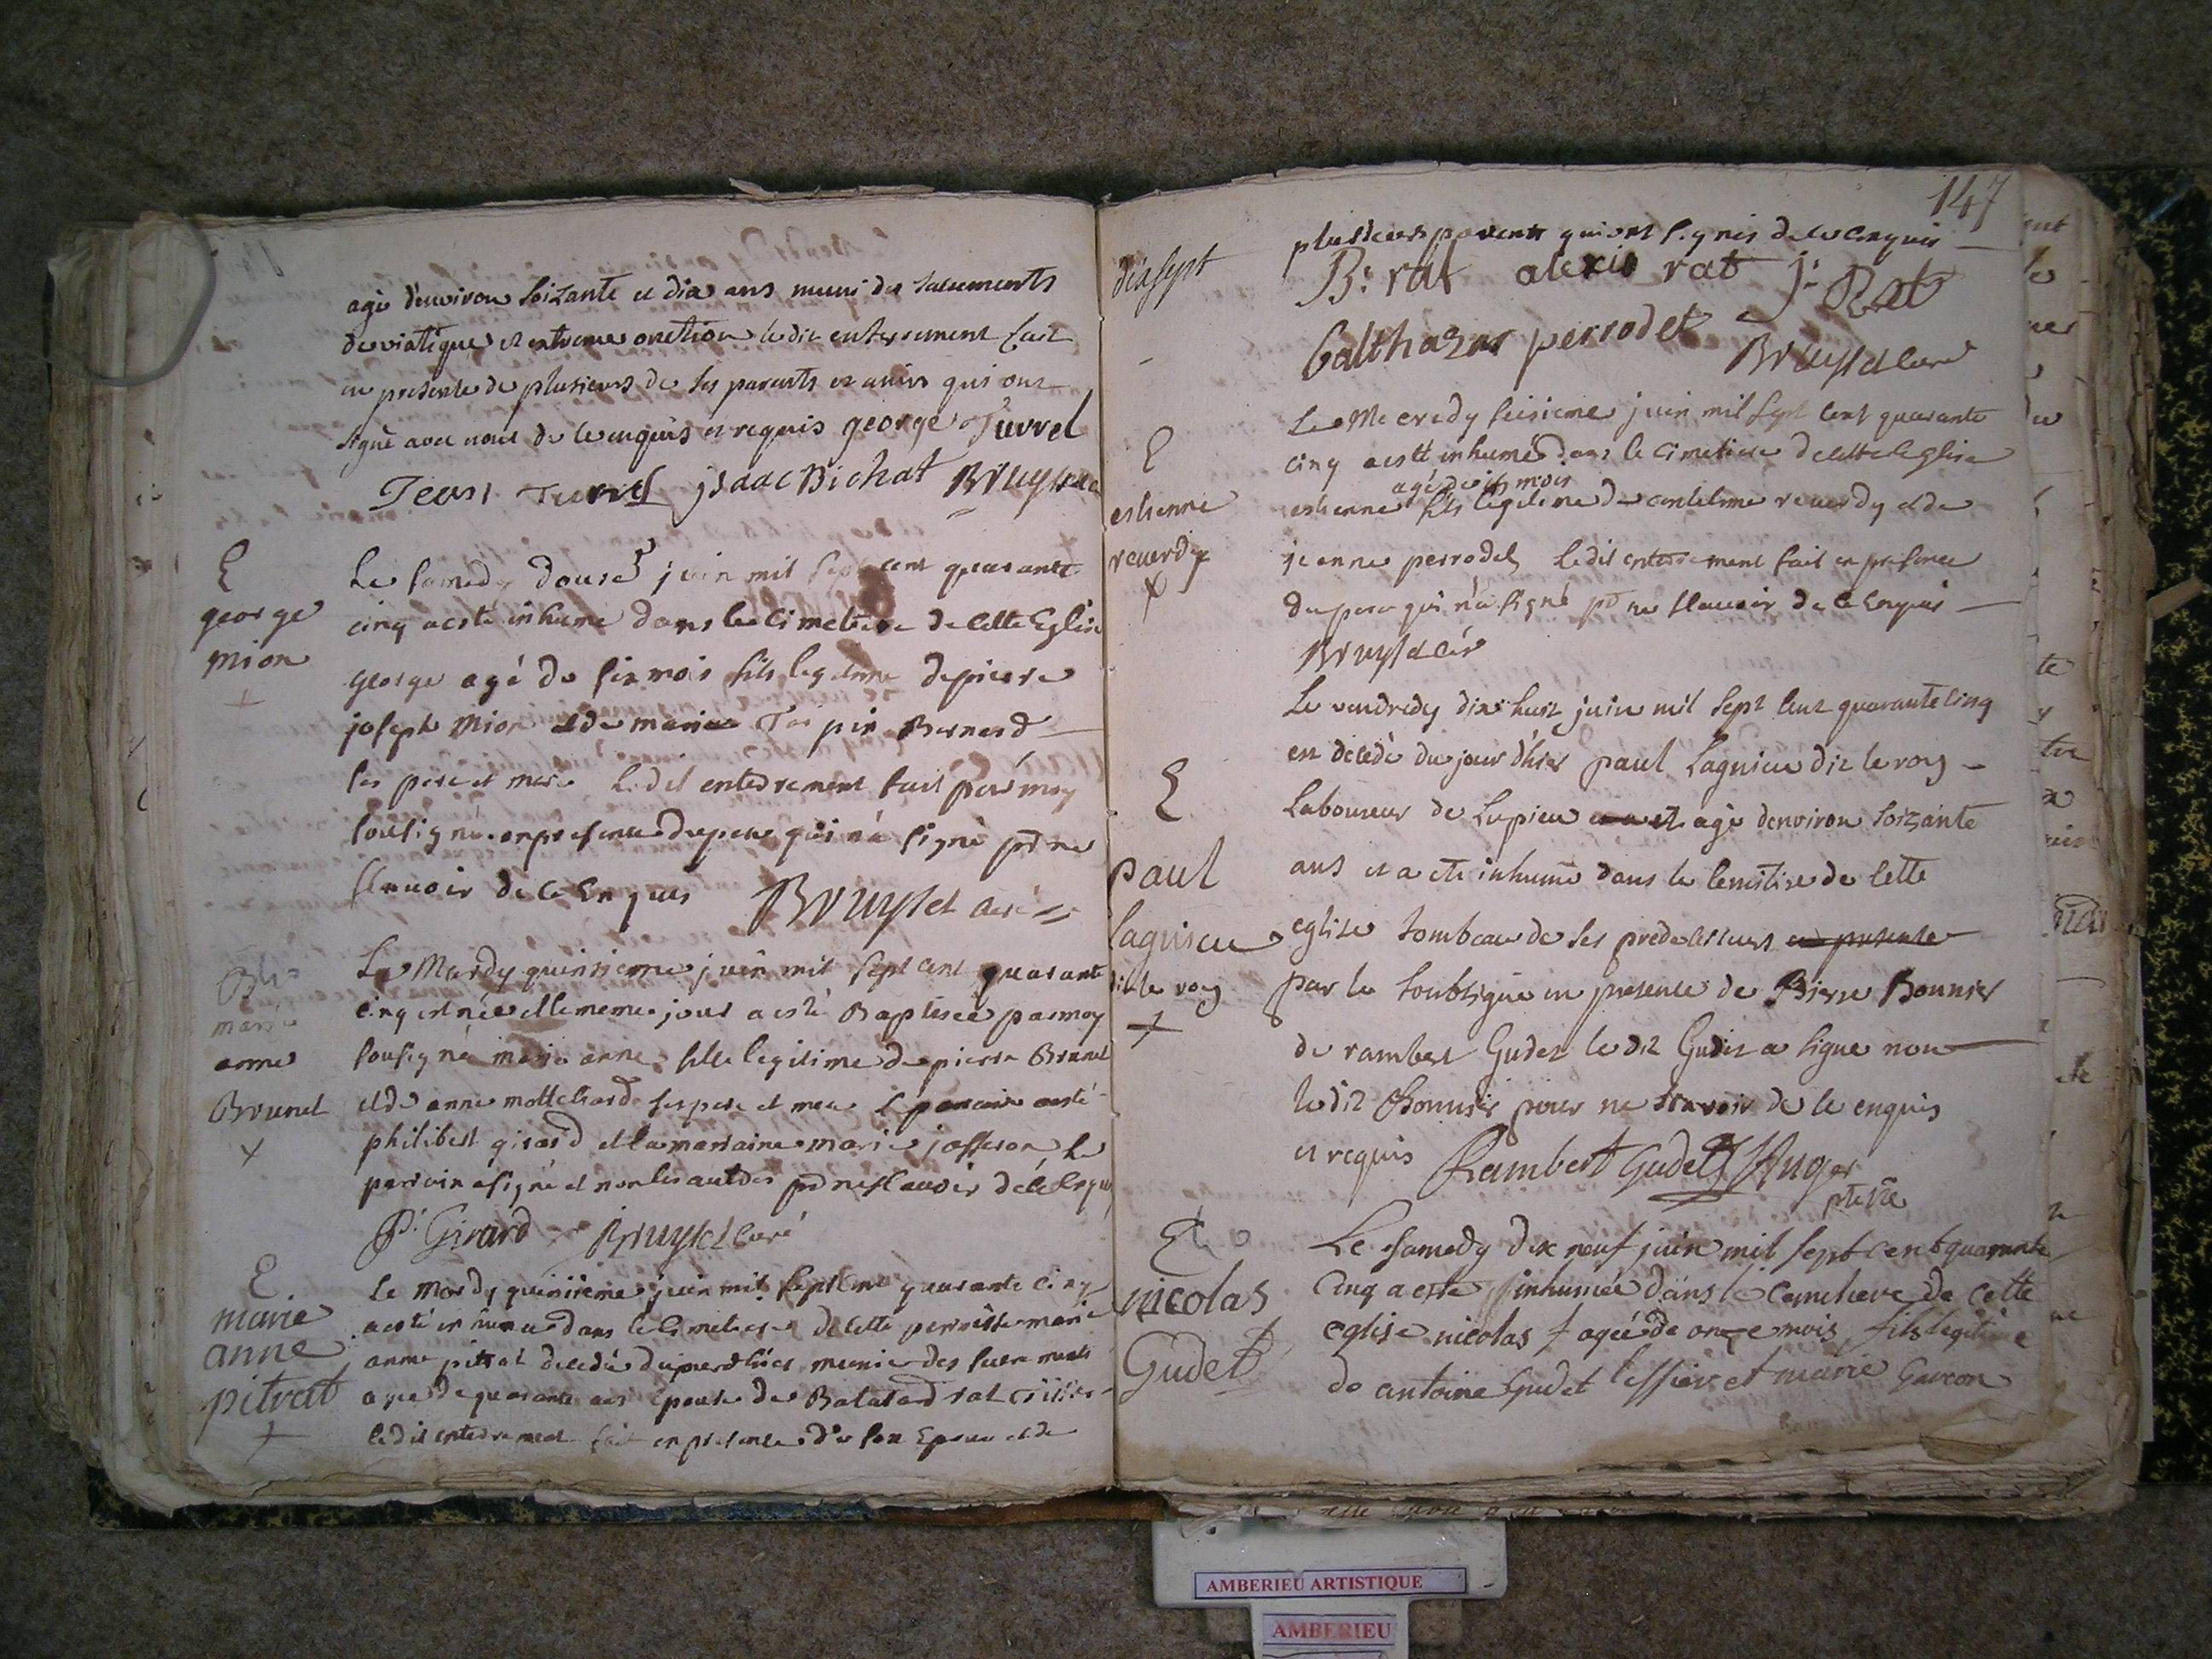 agé d'environ soizante et dix ans muni des sacrements
de viatique et extreme onction le dit enterrement fait
en presence de plusieurs de ses parents et amis qui ont
signé avec nous de ce enquis et requis george Juvrel
isaac Bichat Bruyset
E
george
mion
Le samedy douse juin mil sept cent quarante
cinq a esté inhumé dans le cimetiere de cette Eglise
george agé de six mois fils legitime de pierre
joseph mion et de marie Bernard
ses pere et mere Ledit enterrement fait par moy
sousigné en presence du pere qui n'a signé pr ne
scavoir de ce Enquis Bruyset curé
marie
anne
Brunet
Le Mardy quinsieme juin mil sept cent quarante
cinq est née et le meme jour a esté Baptisée par moy
sousigné marie anne fille legitime de pierre Brunet
et de anne mottchard ses pere et mere le parrain a esté
philibert girard et la marraine marie josseron le
parrain a signé et non les autres pr ne scavoir de ce Enquis
P. Girard Bruyset Curé
E
marie
anne
pitrat
Le Mardy quinsieme juin mil sept cent quarante cinq
a esté inhumée dans le cimetiere de cette parroisse marie
anne pitrat decedée du jour d'hier munie des sacrements
agée de quarante ans Epouse de rat
ledit enterrement fait en presence de son Epoux et de
147
dixsept
plusieurs parents qui ont signés de ce enquis
B. rat alexis rat j. Rat
balthazar perrodet Bruyset Curé
E
estienne
reverdy
Le Mecredy seisieme juin mil sept cent quarante
cinq a esté inhumé dans le cimetiere de cette Eglise
agé de six mois
estienne fils legitime de anthelme reverdy et de
jeanne perrodet ledit enterrement fait en presence
du pere qui n'a signé pr ne scavoir de ce Enquis
Bruyset Curé
E
paul
lagnieu
dit le roy
Le vendredy dix huit juin mil sept cent quarante cinq
est decedé du jour d'hier paul Lagnieu dit le roy
Laboureur de Lupieu agé d'environ soizante
ans et a eté inhumé dans le cemitire de cette
eglise tombeau de ses predecesseurs en presence
par le soubsigné en presence de Pierre Bonnier
de rambert Gudet le dit Gudet a signé non
le dit Bonnier pour ne scavoir de ce enquis
et requis Rambert Gudet Auger
ptre
nicolas
Gudet
Le samedy dix neuf juin mil sept cent quarante
Cinq a esté inhumée dans le cemetiere de cette
eglise nicolas agée de onze mois fils legitime
de antoine Gudet tessier et marie Garcon
AMBERIEU ARTISTIQUE
AMBERIEU